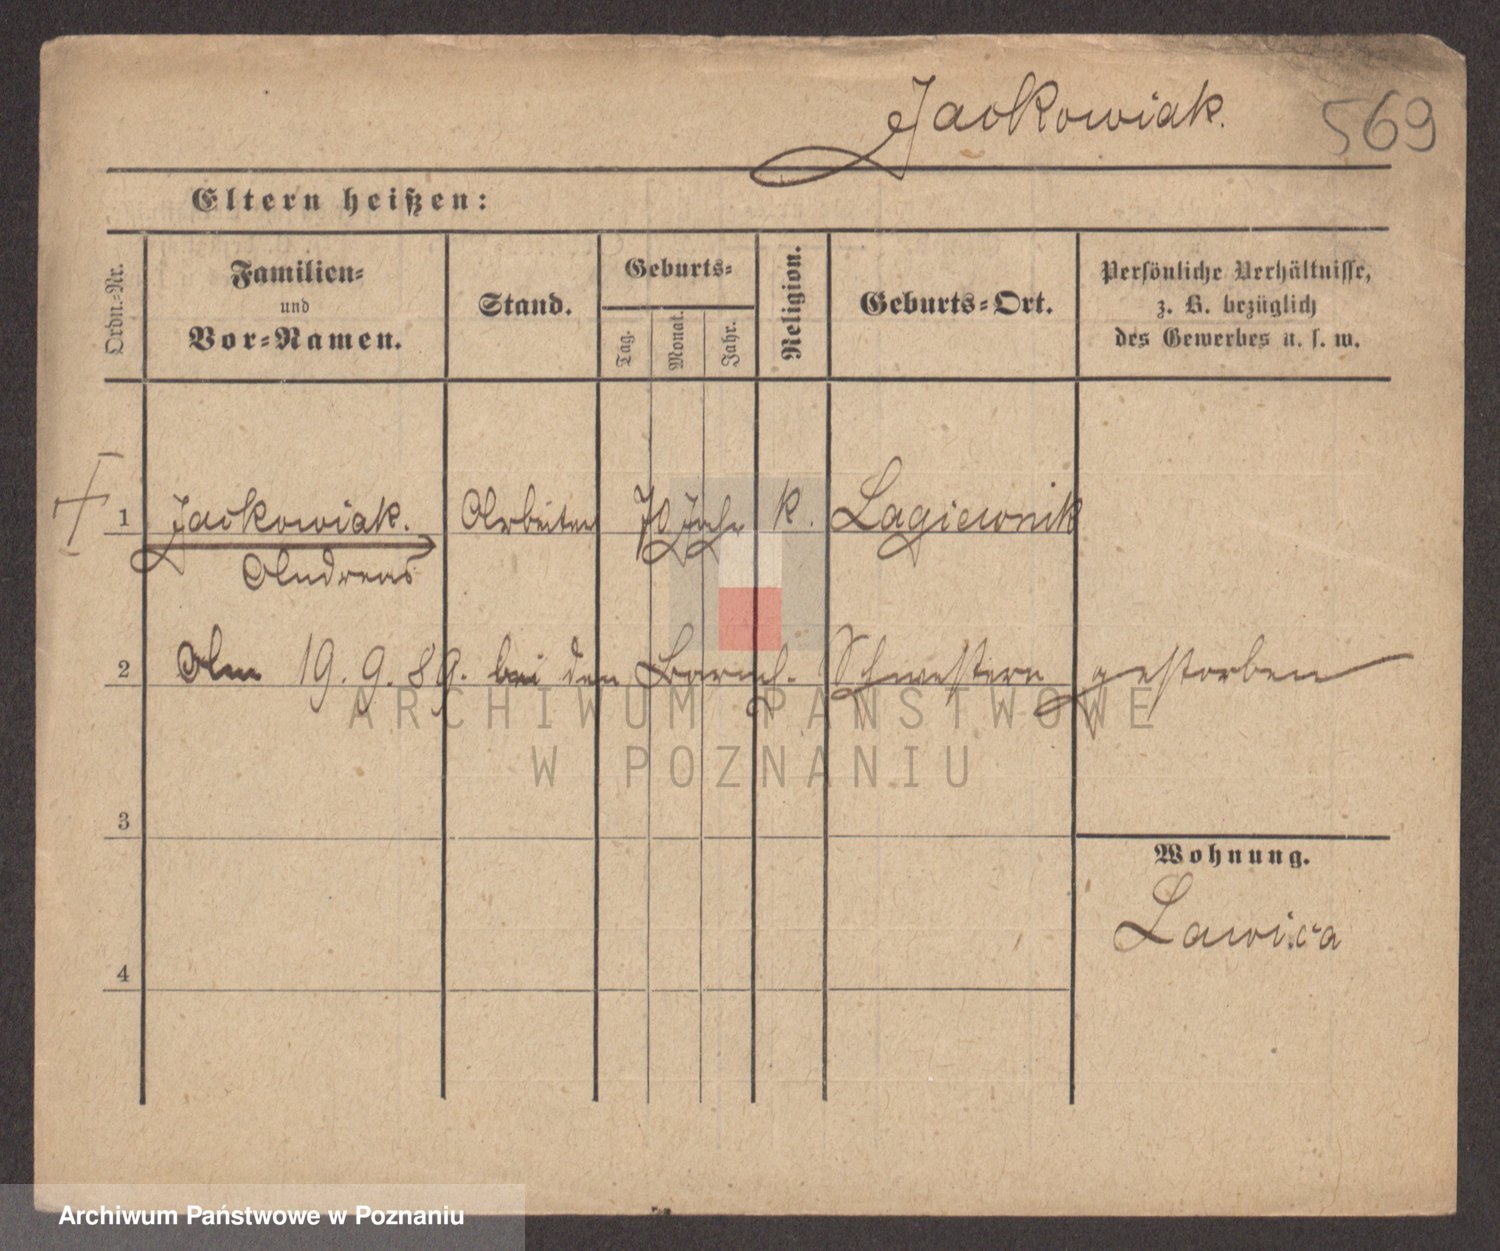 Jackowiak.
569
Eltern heißen:
Ordn.-Nr.
Familien-
und
Vor-Namen.
Stand.
Geburts-
Tag.
Monat.
Jahr.
Religion.
Geburts-Ort.
Persönliche Verhältnisse,
z. B. bezüglich
des Gewerbes u. s. w.
1 Jackowiak. Arbeiter 70 Jahr k. Lagiewnik
Andreas
2 Am 19.9.89. bei den Barmh. Schwestern gestorben
ARCHIWUM PAŃSTWOWE
W POZNANIU
3
Wohnung.
Lawica
4
Archiwum Państwowe w Poznaniu